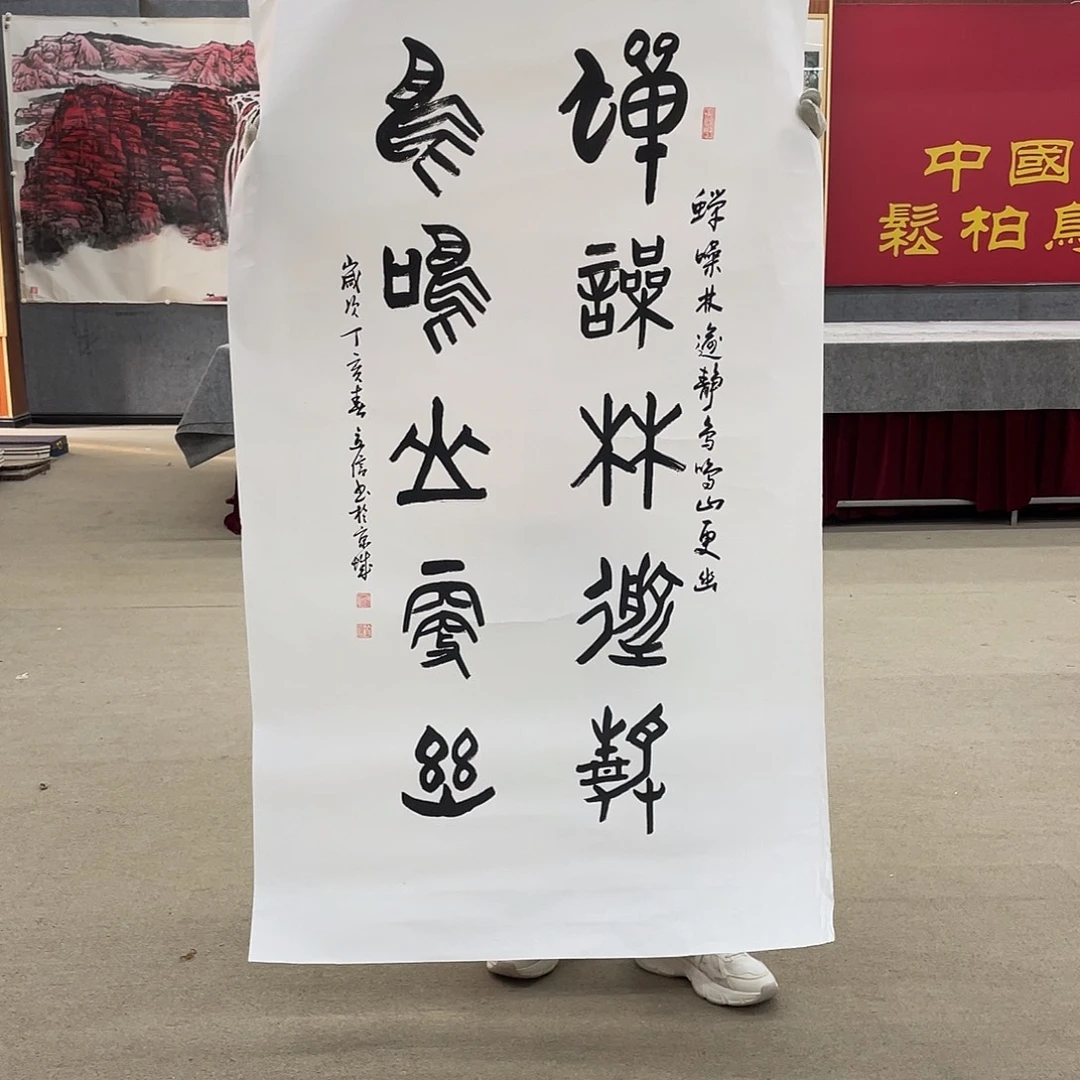 蟬噪林逾静鸟鸣山更幽
蟬譟林逾靜
鳥鳴山更幽
歲次丁亥春立信书於京城
中國
鬆柏鳥